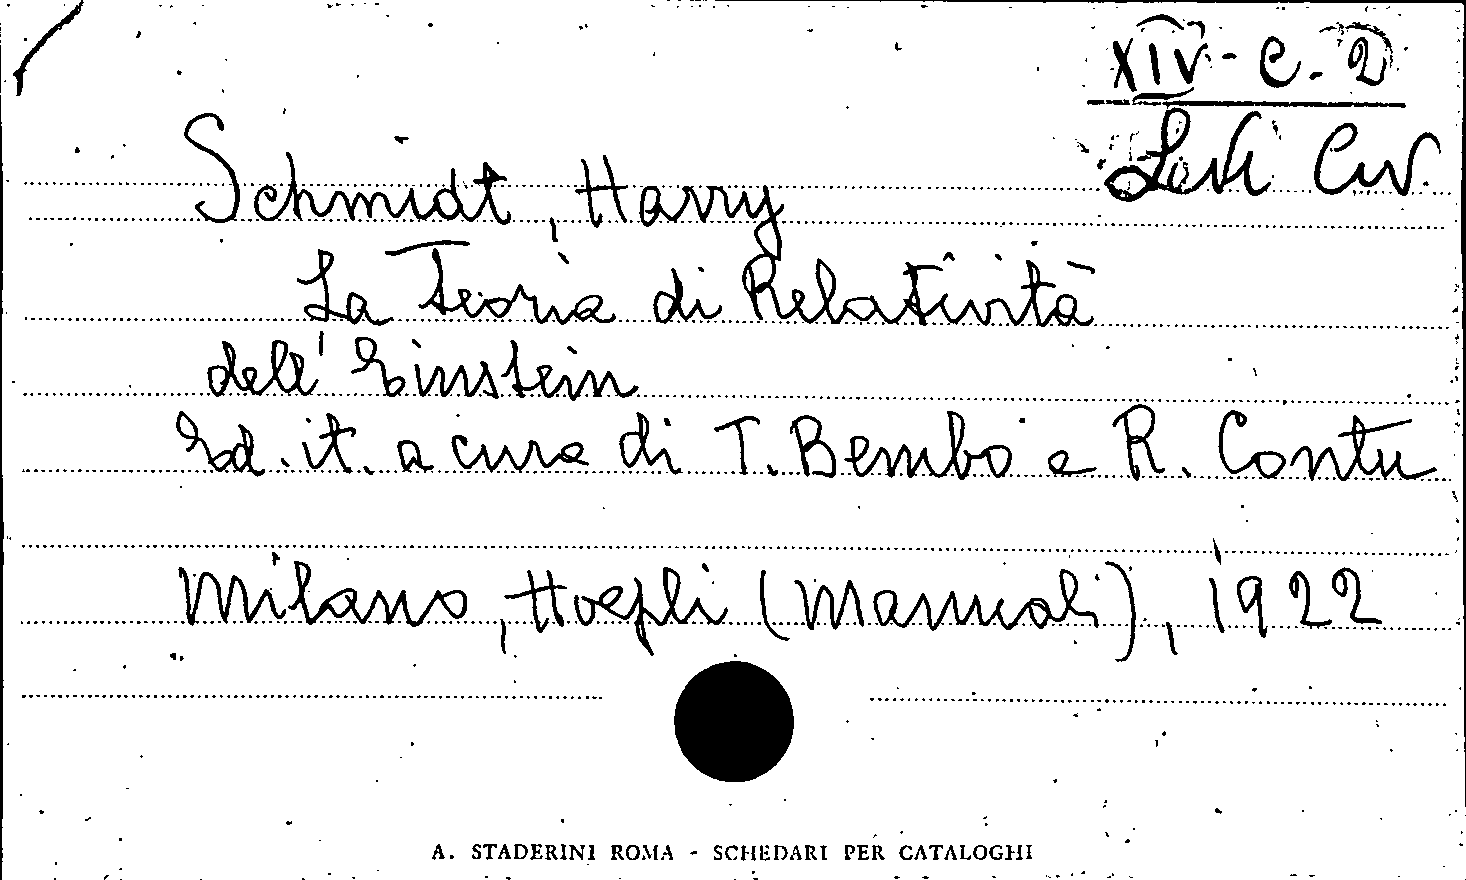 XIV - C. 2
Levi Civ.
Schmidt, Harry
La Teoria di Relatività
dell' Einstein
Ed. it. a cura di T. Bembo e R. Contu
Milano, Hoepli (Manuali), 1922
A. STADERINI ROMA - SCHEDARI PER CATALOGHI